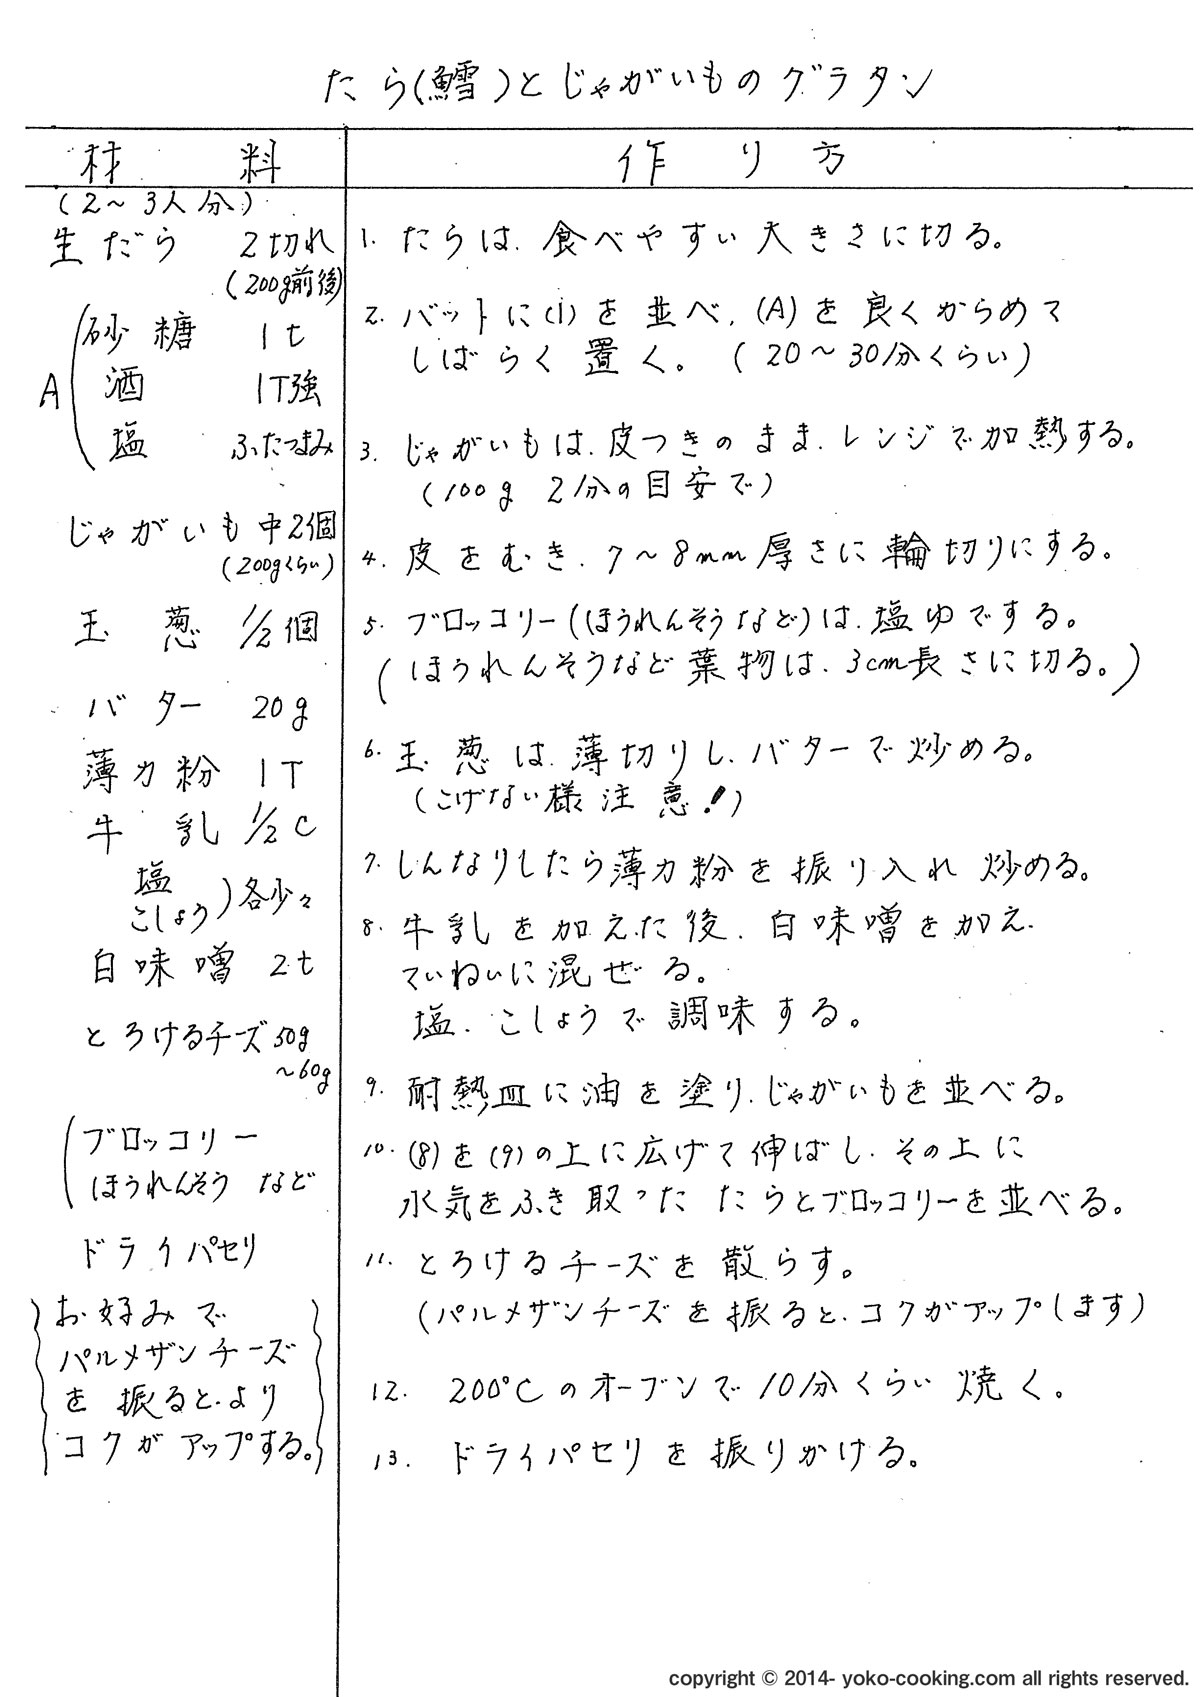 たら(鱈)とじゃがいものグラタン
材 料
(2〜3人分)
生だら 2切れ
(200g前後)
A
砂糖 1t
酒 1T強
塩 ふたつまみ
じゃがいも中2個
(200gくらい)
玉葱 1/2個
バター 20g
薄力粉 1T
牛乳 1/2C
塩
こしょう)各少々
白味噌 2t
とろけるチーズ50g
〜60g
(ブロッコリー
ほうれんそう など
ドライパセリ
お好みで
パルメザンチーズ
を振ると、より
コクがアップする。
作り方
1. たらは、食べやすい大きさに切る。
2. バットに(1)を並べ、(A)を良くからめて
しばらく置く。(20〜30分くらい)
3. じゃがいもは、皮つきのまま、レンジで加熱する。
(100g 2分の目安で)
4. 皮をむき、7〜8mm厚さに輪切りにする。
5. ブロッコリー(ほうれんそうなど)は、塩ゆでする。
(ほうれんそうなど葉物は、3cm長さに切る。)
6. 玉葱は、薄切りし、バターで炒める。
(こげない様注意!)
7. しんなりしたら薄力粉を振り入れ炒める。
8. 牛乳を加えた後、白味噌を加え、
ていねいに混ぜる。
塩、こしょうで調味する。
9. 耐熱皿に油を塗り、じゃがいもを並べる。
10. (8)を(9)の上に広げて伸ばし、その上に
水気をふき取ったたらとブロッコリーを並べる。
11. とろけるチーズを散らす。
(パルメザンチーズを振ると、コクがアップします)
12. 200℃のオーブンで10分くらい焼く。
13. ドライパセリを振りかける。
copyright © 2014- yoko-cooking.com all rights reserved.